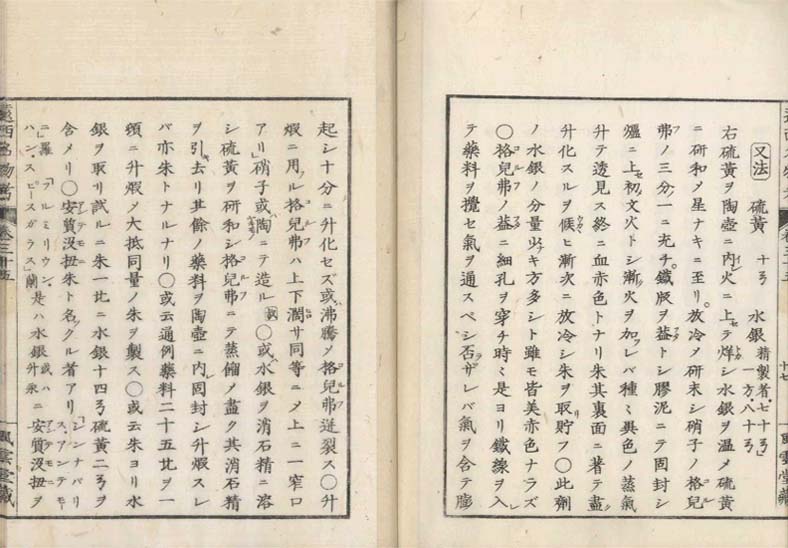 又法 硫黄 十弓 水銀 精製者七十弓 一方八十弓
右硫黄ヲ陶壺ニ内火ニ上テ烊シ水銀ヲ温メ硫黄
ニ研和メ星ナキニ至リ放冷メ研末シ硝子ノ格兒
弗ノ三分一ニ充チ鐵版ヲ益トシ膠泥ニテ固封シ
爐ニ上セ初文火トシ漸火ヲ加フレバ種〻異色ノ蒸氣
升テ透見ス終ニ血赤色トナリ朱其裏面ニ著テ盡ク
升化スルヲ候ヒ漸次ニ放冷シ朱ヲ取貯フ〇此劑
ノ水銀ノ分量少ナキ方多シト雖モ皆美赤色ナラズ
〇格兒弗ノ益ニ細孔ヲ穿チ時〻是ヨリ鐵線ヲ入
テ藥料ヲ攪セ氣ヲ通スベシ否ザレバ氣ヲ含テ膨
十七
風雲堂藏
起シ十分ニ升化セズ或沸騰メ格兒弗迸裂ス〇升
煆ニ用フル格兒弗ハ上下濶サ同等ニメ上ニ一窄口
アリ硝子或陶ニテ造ル 〇或水銀ヲ消石精ニ溶
シ硫黄ヲ研和シ格兒弗ニテ蒸餾メ盡ク其消石精
ヲ引去リ其餘ノ藥料ヲ陶壺ニ内固封シ升煆スレ
バ亦朱トナルナリ〇或云通例藥料二十五比ヲ一
頭ニ升煆メ大抵同量ノ朱ヲ製ス〇或云朱ヨリ水
銀ヲ取リ試ルニ朱一比ニ水銀十四弓硫黄二弓ヲ
含メリ〇安質没扭朱ト名クル者アリ「シンナバリス、アンテモニ」羅「アルミリウン」或ハ
ハンスピースガラス」蘭 是ハ水銀升汞ニ安質没扭ヲ
遠西名物考 卷三十五
風雲堂藏